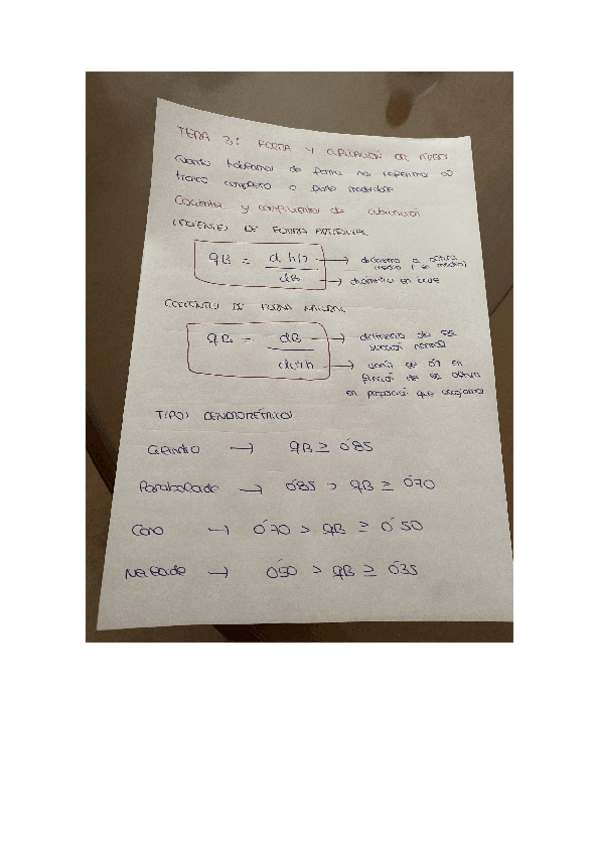 TEMA 3: FORMA Y CUBICACIÓN DE ÁRBOLES
Cuando hablamos de forma nos referimos al
tronco completo o parte maderable
Cocientes y complementos de cubicación
COCIENTES DE FORMA ARTIFICIAL
qB = d h/2 → diámetro a altura
media (en medio)
dB → diámetro en base
COCIENTES DE FORMA NATURAL
qB = dB → diámetro de su
sección normal
→ varía de en
función de su altura
en proporción que escojamos
TIPOS DENDROMÉTRICOS
Cilindro → qB ≥ 0'85
Paraboloide → 0'85 > qB ≥ 0'70
Cono → 0'70 > qB ≥ 0'50
Neiloide → 0'50 > qB ≥ 0'35